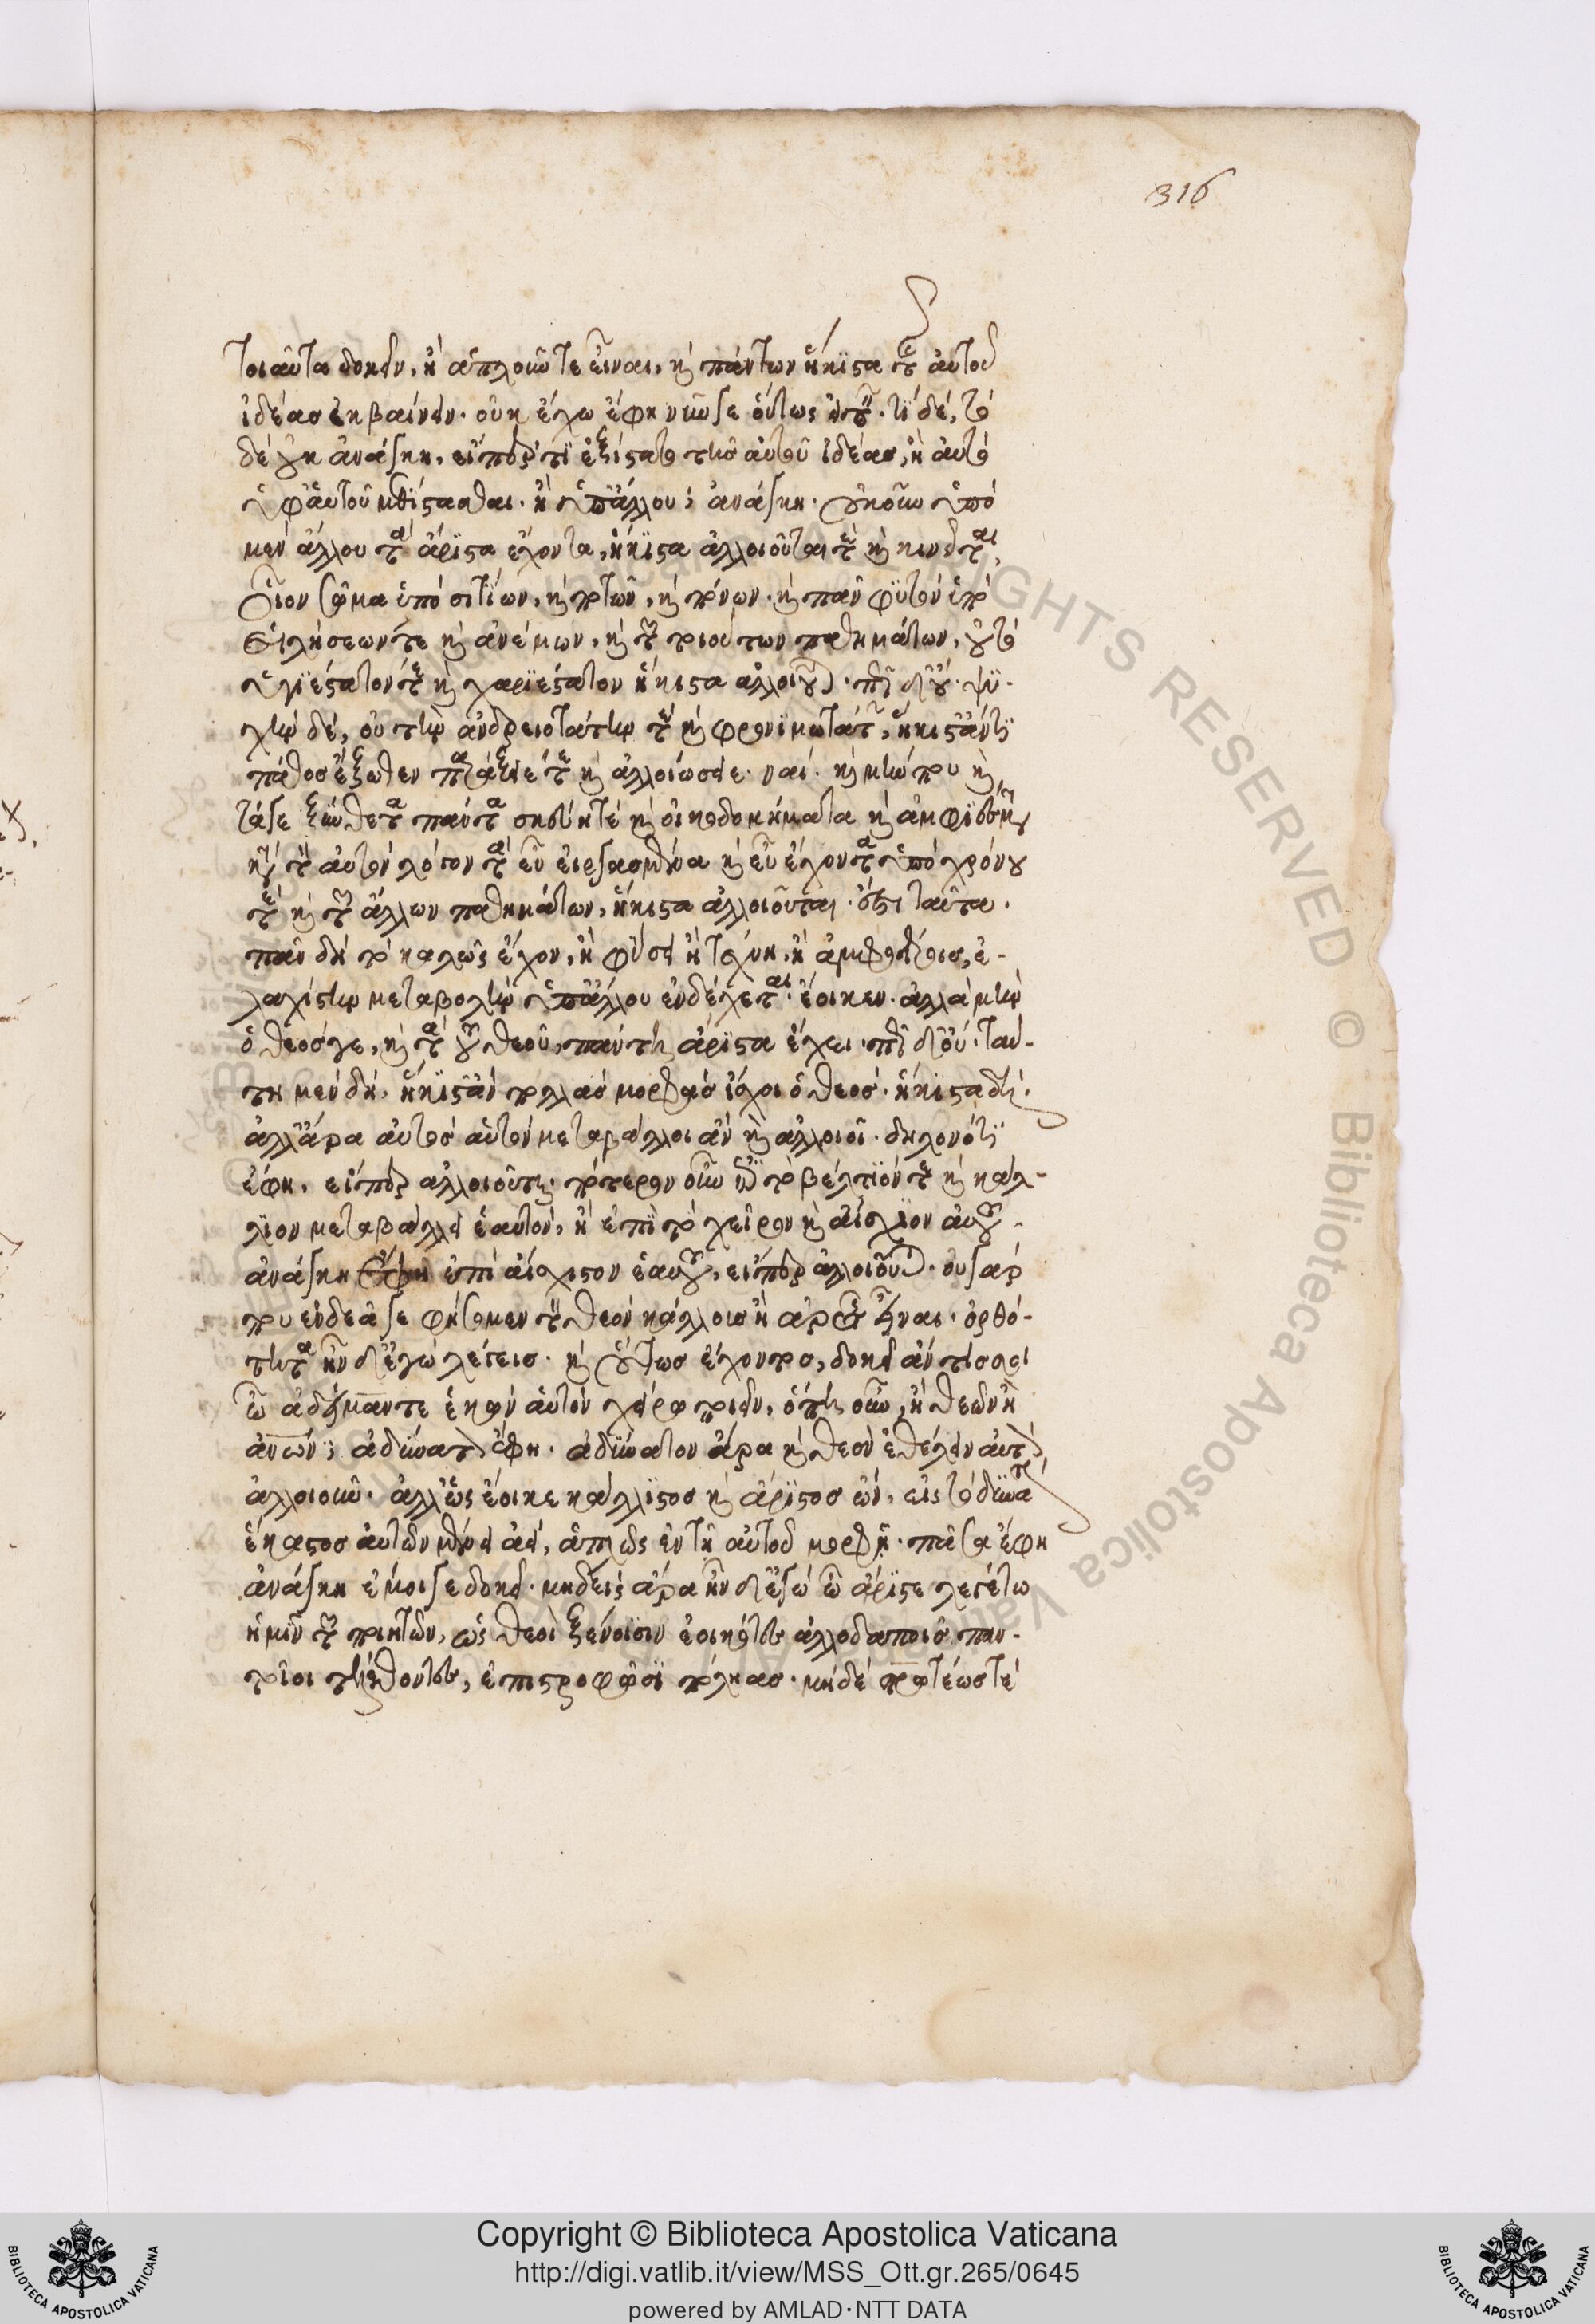 τοιαῦτα δοκεῖν, ἢ ἁπλοῦν τε εἶναι, καὶ πάντων ἥκιστα τῆς αὐτοῦ
ἰδέας ἐκβαίνειν. οὐκ ἔχω ἔφη νῦν γε οὕτως εἰπεῖν. τί δέ, τό
δε οὐκ ἀνάγκη, εἴπερ τι ἐξίστατο τῆς αὑτοῦ ἰδέας, ἢ αὐτὸ
ὑφ' ἑαυτοῦ μεθίστασθαι. ἢ ὑπ' ἄλλου; ἀνάγκη. οὐκοῦν ὑπὸ
μὲν ἄλλου τὰ ἄριστα ἔχοντα, ἥκιστα ἀλλοιοῦταί τε καὶ κινεῖται,
οἷον σῶμα ὑπὸ σιτίων, καὶ ποτῶν, καὶ πόνων. καὶ πᾶν φυτὸν ὑπὸ
εἱλήσεών τε καὶ ἀνέμων, καὶ τῶν τοιούτων παθημάτων, οὐ τὸ
ὑγιέστατόν τε καὶ χαριέστατον ἥκιστα ἀλλοιοῦται. πῶς δ' οὔ. ψυ-
χὴν δέ, οὐ τὴν ἀνδρειοτάτην τε καὶ φρονιμωτάτην, ἥκιστ' ἄν τι
πάθος ἔξωθεν ταράξειέ τε καὶ ἀλλοιώσειε. ναί. καὶ μήν που καὶ
τά γε ξύνθετα πάντα σκεύη τε καὶ οἰκοδομήματα καὶ ἀμφιέσματα
κατὰ τὸν αὐτὸν λόγον τὰ εὖ εἰργασμένα καὶ εὖ ἔχοντα ὑπὸ χρόνου
τε καὶ τῶν ἄλλων παθημάτων, ἥκιστα ἀλλοιοῦται. ἔστι ταῦτα.
πᾶν δὴ τὸ καλῶς ἔχον, ἢ φύσει ἢ τέχνῃ, ἢ ἀμφοτέροις, ἐ-
λαχίστην μεταβολὴν ὑπ' ἄλλου ἐνδέχεται. ἔοικεν. ἀλλὰ μὴν
ὁ θεός γε, καὶ τὰ τοῦ θεοῦ, πάντῃ ἄριστα ἔχει. πῶς δ' οὔ. ταύ-
τῃ μὲν δὴ, ἥκιστ' ἂν πολλὰς μορφὰς ἴσχοι ὁ θεός. ἥκιστα δῆτα.
ἀλλ' ἄρα αὐτὸς αὑτὸν μεταβάλλοι ἂν καὶ ἀλλοιοῖ. δηλονότι
ἔφη, εἴπερ ἀλλοιοῦται. πότερον οὖν ἐπὶ τὸ βέλτιόν τε καὶ κάλ-
λιον μεταβάλλει ἑαυτόν, ἢ ἐπὶ τὸ χεῖρον καὶ αἴσχιον αὑτοῦ.
ἀνάγκη ἔφη ἐπὶ αἴσχιστον ἑαυτοῦ, εἴπερ ἀλλοιοῦται. οὐ γάρ
που ἐνδεᾶ γε φήσομεν τὸν θεὸν κάλλους ἢ ἀρετῆς εἶναι. ὀρθό-
τατα ἦν δ' ἐγὼ λέγεις. καὶ οὕτως ἔχοντος, δοκεῖ ἄν τίς σοι
ὦ ἀδείμαντε ἑκὼν αὑτὸν χείρω ποιεῖν, ὁπῃοῦν, ἢ θεῶν ἢ
ἀνων; ἀδύνατον ἔφη. ἀδύνατον ἄρα καὶ θεὸν ἐθέλειν αὑτὸν
ἀλλοιοῦν. ἀλλ' ὡς ἔοικε κάλλιστος καὶ ἄριστος ὤν, εἰς τὸ δυνατὸν
ἕκαστος αὐτῶν μένει ἀεὶ, ἁπλῶς ἐν τῇ αὑτοῦ μορφῇ. πᾶσα ἔφη
ἀνάγκη ἔμοιγε δοκεῖ. μηδεὶς ἄρα ἦν δ' ἐγώ ὦ ἄριστε λεγέτω
ἡμῖν τῶν ποιητῶν, ὡς θεοὶ ξείνοισιν ἐοικότες ἀλλοδαποῖς παν-
τοῖοι τελέθοντες, ἐπιστροφῶσι πόληας. μηδὲ πρωτέως τε
316
Copyright © Biblioteca Apostolica Vaticana
http://digi.vatlib.it/view/MSS_Ott.gr.265/0645
powered by AMLAD·NTT DATA